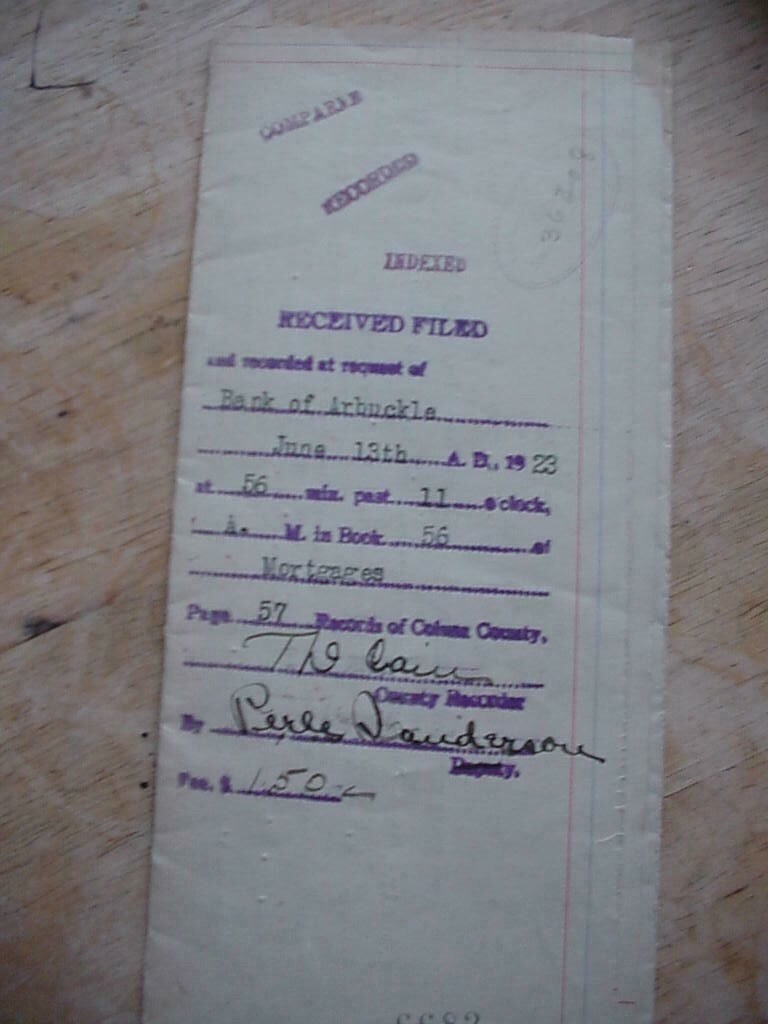 COMPARED
RECORDED
INDEXED
RECEIVED FILED
and recorded at request of
Bank of Arbuckle
June 13th A. D., 19 23
at 56 min. past 11 o'clock,
A. M. in Book 56 of
Mortgages
Page 57 Records of Colusa County,
Cain
County Recorder
By Perle Sanderson
Deputy.
Fee. $ 1.50